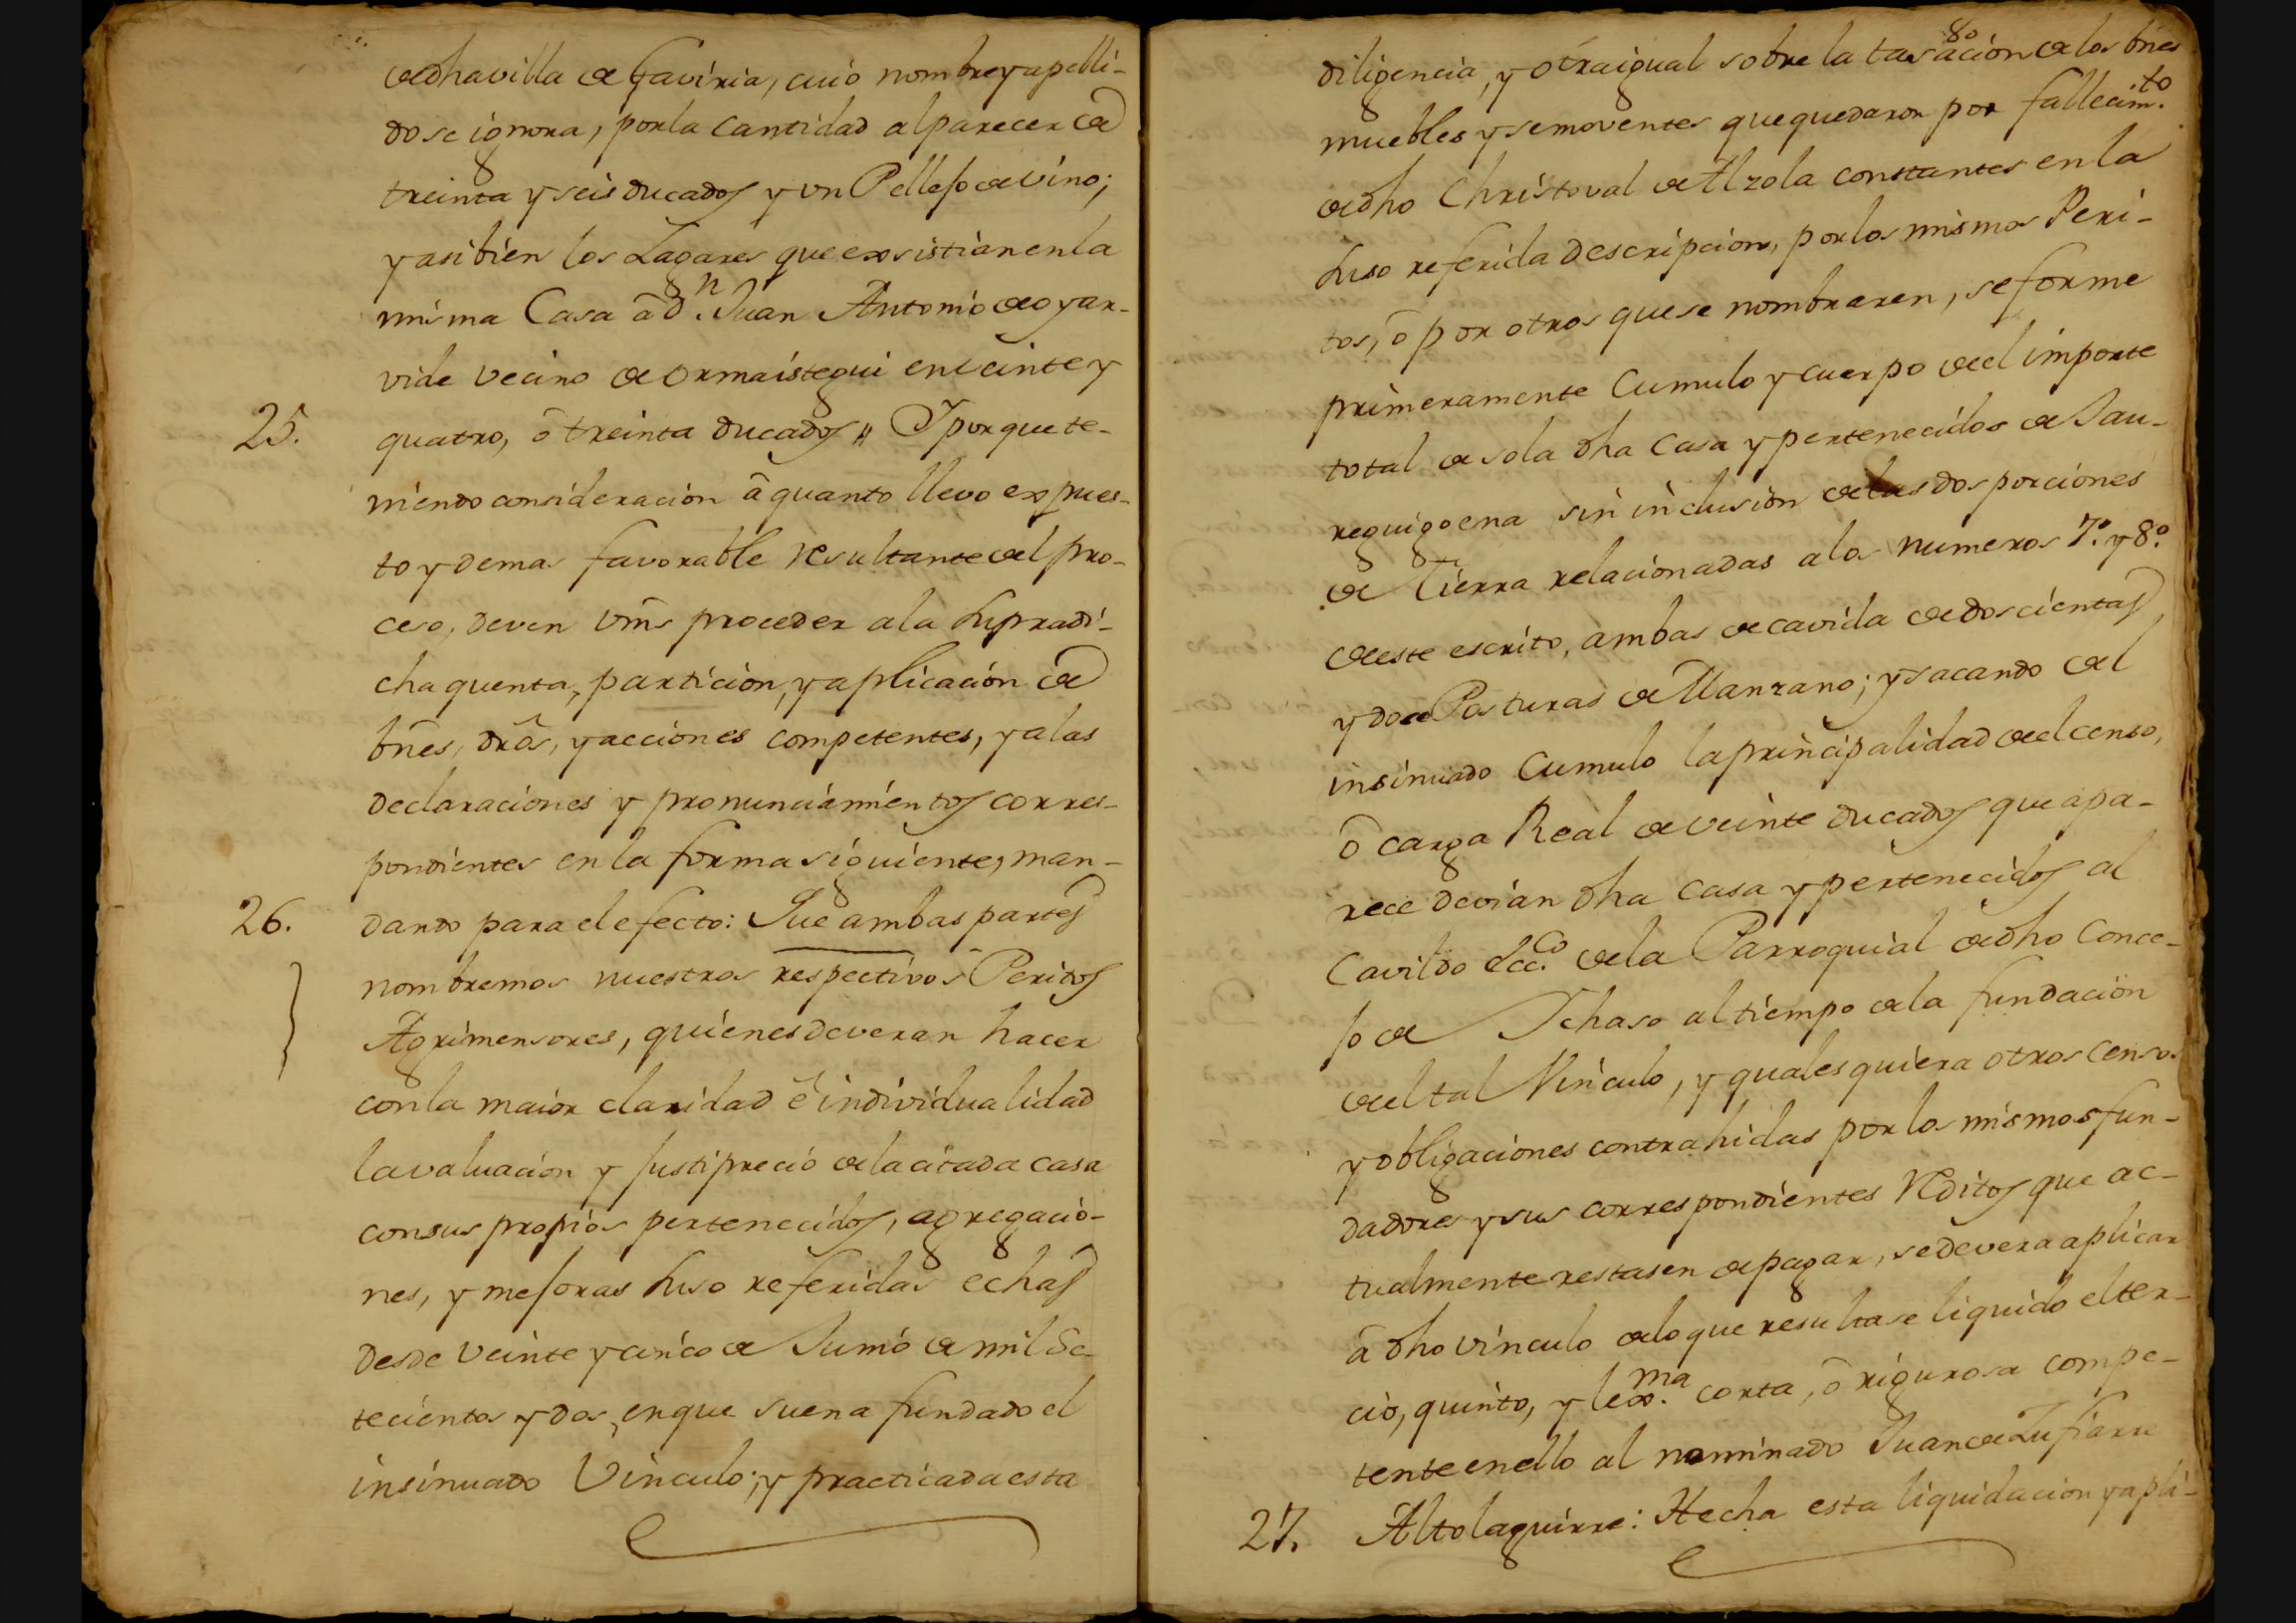 dedha villa de Gaviria, cuio nombre y apelli-
do se ignora, por la Cantidad al parecer de
treinta y seis ducados y vn Pellejo de vino;
y asi bien los Lagares que exsistian en la
misma Casa â Dn. Juan Antonio de oyar-
vide vecino de Ormaistegui en veinte y
25. quatro, ô treinta ducados,, Y por que te-
niendo consideracion â quanto llevo expues-
to y demas favorable resultante del pro-
ceso, deven vms proceder a la supradi-
cha quenta, particion, y aplicacion de
bnes, dros, y acciones competentes, y a las
declaraciones y pronunciamientos corres-
pondientes en la forma siguiente, man-
26. dando para el efecto: Que ambas partes
nombremos nuestros respectivos Peritos
Agrimensores, quienes deveran hacer
con la maior claridad ê individualidad
la valuacion y justiprecio de la citada casa
con sus propios pertenecidos, agregacio-
nes, y mejoras suso referidas echas
desde veinte y cinco de Junio de mil Se-
tecientos y dos, en que suena fundado el
insinuado Vinculo; y practicada esta
80
diligencia, y otra igual sobre la tasacion de los bnes
muebles y semoventes que quedaron por fallecimto.
de dho Christoval de Alzola constantes en la
suso referida descripcion, por los mismos Peri-
tos, ô por otros que se nombraren, se forme
primeramente Cumulo y cuerpo del importe
total de sola dha Casa y pertenecidos de Jau-
reguigoena sin inclusion de las dos porciones
de Tierra relacionadas a los numeros 7º. y 8º.
de este escrito, ambas de cavida de doscientas
y doce Posturas de Manzano; y sacando del
insinuado Cumulo la principalidad del censo,
ô carga Real de veinte ducados que apa-
rece devian dha Casa y pertenecidos al
Cavildo Ecco. de la Parroquial de dho Conce-
jo de Ichaso al tiempo de la fundacion
del tal Vinculo, y quales quiera otros censos
y obligaciones contrahidas por los mismos fun-
dadores y sus correspondientes Reditos que ac-
tualmente restasen de pagar, se devera aplicar
â dho vinculo de lo que resultase liquido el ter-
cio, quinto, y lexma. corta, ô rigurosa compe-
tente en ello al nominado Juan de Lufiarre
27. Altolaguirre: Hecha esta liquidacion y apli-